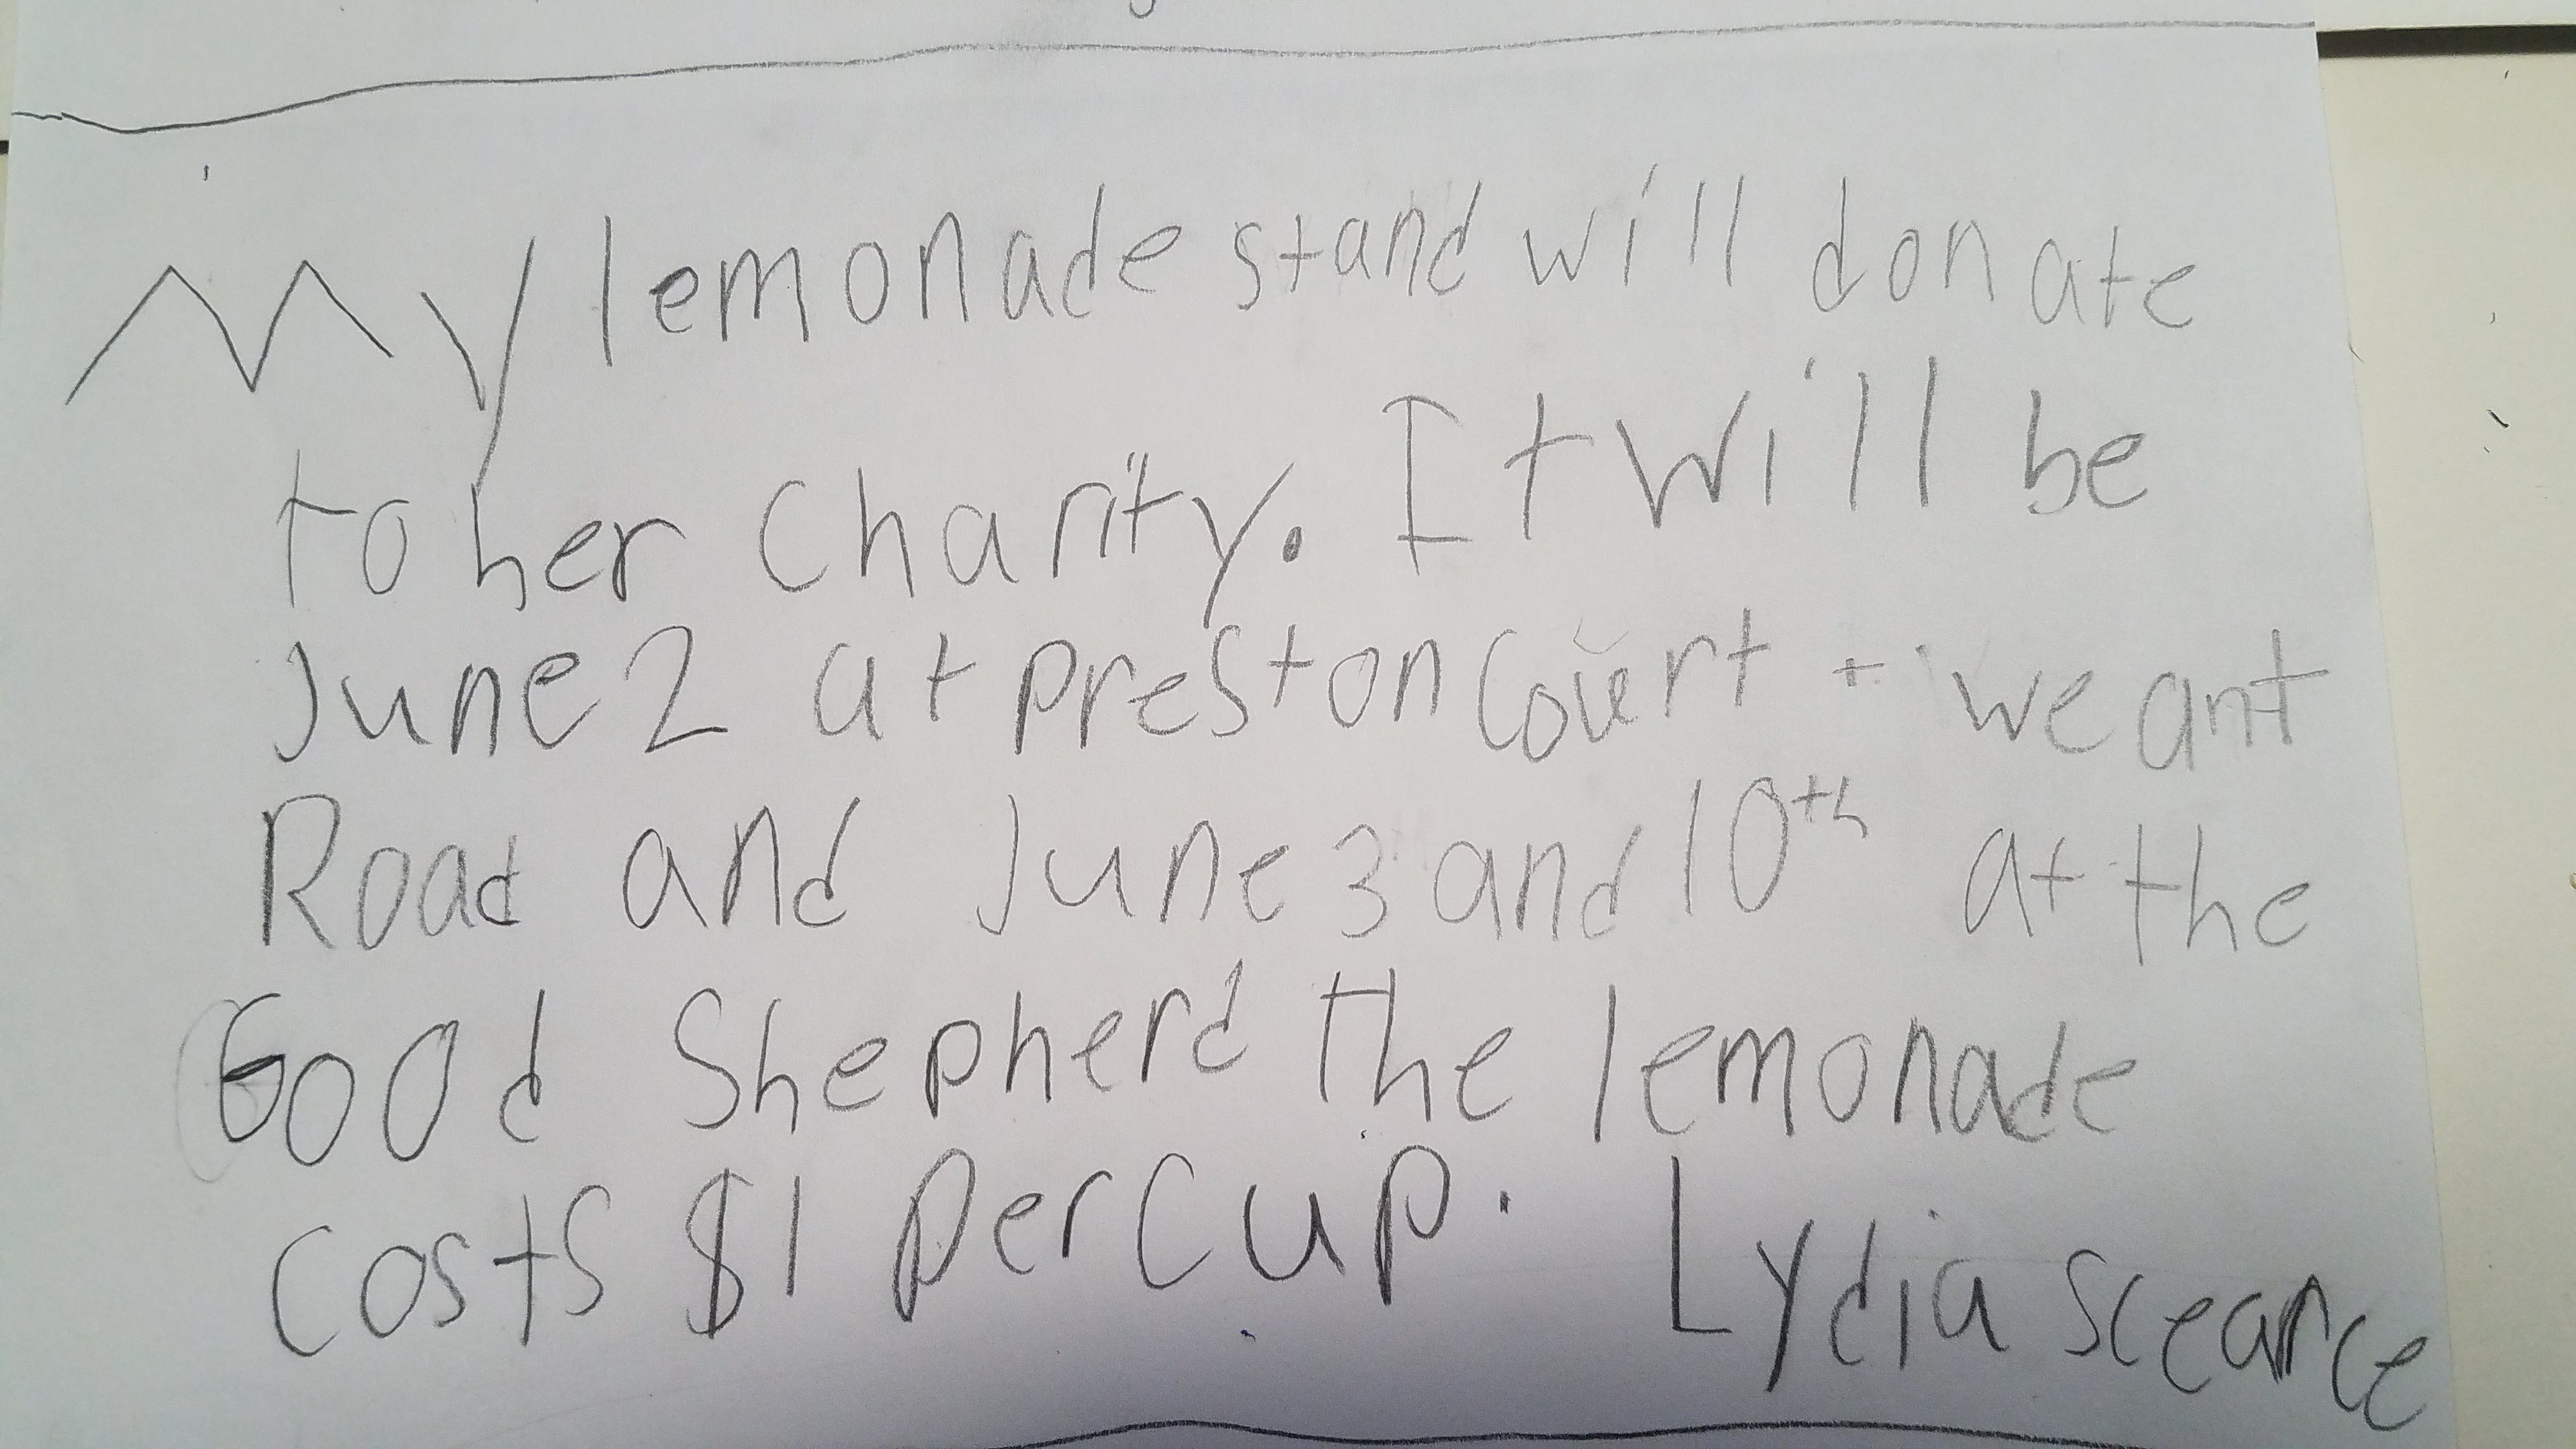 My lemonade stand will donate
to her charity. It will be
June 2 at preston Court + weant
Road and June 3 and 10th at the
Good Shepherd the lemonade
costs $1 per cup. Lydia Scearce